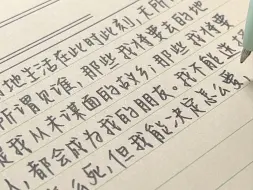 地生活在此时此刻,无所
所谓见谁,那些我将要去的地
是我从未谋面的故乡;那些我将要
人,都会成为我的朋友。我不能选
么死,但我能决定怎么爱,